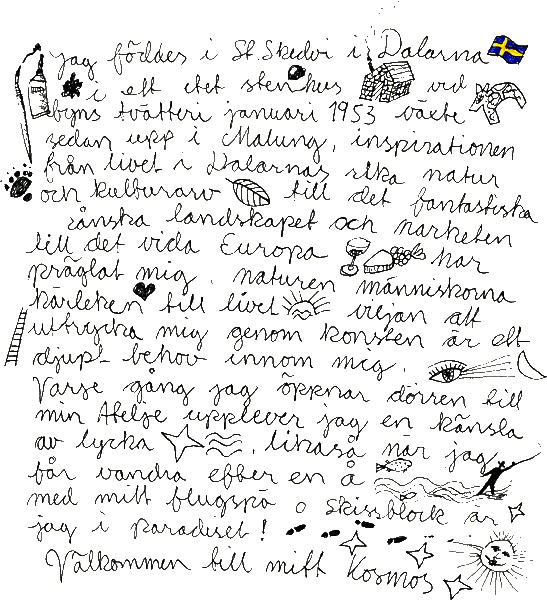 Jag föddes i St. Skedvi i Dalarna
i ett litet stenhus vid
byns tvätteri januari 1953 växte
sedan upp i Malung, inspirationen
från livet i Dalarnas rika natur
och kulturarv till det fantastiska
skånska landskapet och närheten
till det vida Europa har
präglat mig. naturen människorna
kärleken till livet viljan att
uttrycka mig genom konsten är ett
djupt behov innom mig.
Varje gång jag öppnar dörren till
min Atelje upplever jag en känsla
av lycka, likaså när jag
får vandra efter en å
med mitt flugspö o skissblock är
jag i paradiset!
Välkommen till mitt Kosmos